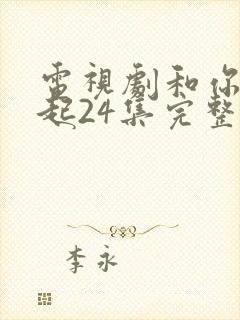 電視劇和你
起24集完整
李永